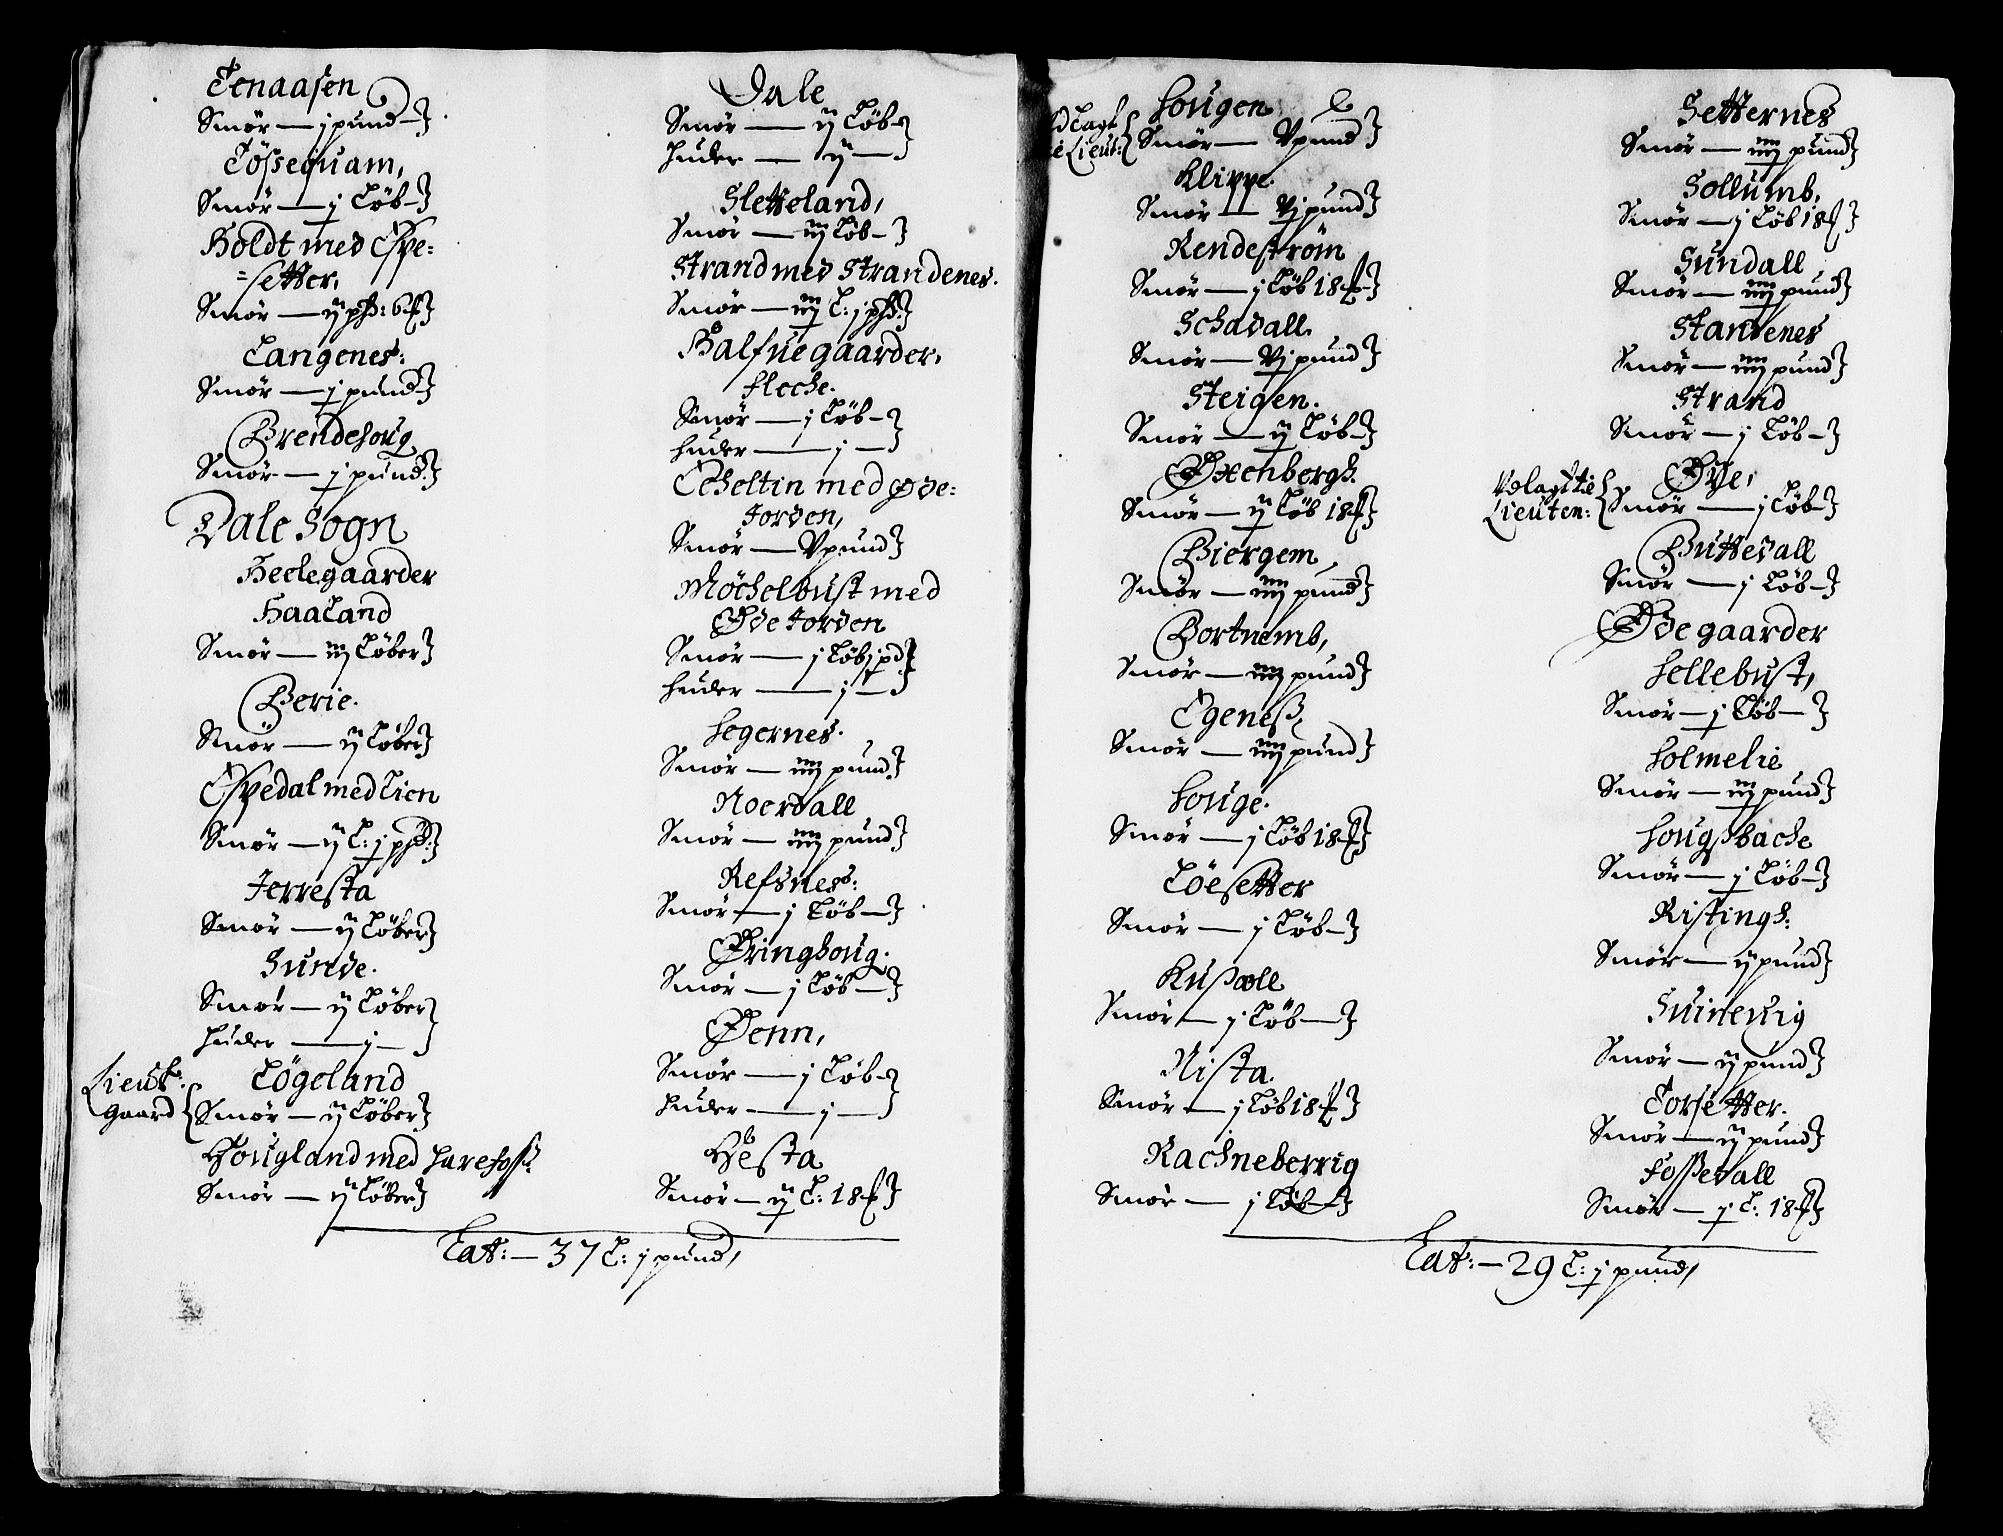 Tenaasen
Smör — j pund
Tössequam,
Smör — j Löb
Holdt med Espe=
=setter,
Smör — ij
Langenes:
Smör — j pund
Brendehoug
Smör — j pund
Dale Sogn
Heelegaarder
Haaland
Smör — iij Löber
Berie.
Smör — ij Löber
Espedal med Lien
Smör — ij L: j
Jerresta
Smör — ij Löber
Sunde.
Smör — ij Löber
Huder — j
Lieut:
gaard
Tögeland
Smör — ij Löber
Hougland med
Smör — ij Löber
Dale
Smör — ij Löb
Huder — ij
Sletteland,
Smör — iij Löb
Strand med Strandenes.
Smör — iij L: j
Halfue gaarder,
Fleche.
Smör — j Löb
Huder — j
Echeltin med Øde=
Jorden,
Smör — V pund
Möchelbust med
Øde Jorden
Smör — j Löb j pd
Huder — j
Hegernes.
Smör — iiij pund
Noerdall
Smör — iiij pund
Refsness:
Smör — j Löb
Øringhoug.
Smör — j Löb
Øenn,
Smör — j Löb
Huder — j
Hesta
Smör — ij L: 18
Lat: — 37 L: j pund,
Lieut:
Hougen
Smör — V pund
Klippe.
Smör — Vj pund
Rendeström
Smör — j Löb 18
Schadall.
Smör — Vj pund
Steigen.
Smör — ij Löb
Øxenbergh.
Smör — ij Löb 18
Biergem
Smör — iiij pund
Bortnemb,
Smör — iiij pund
Egeness,
Smör — iiij pund
Houge.
Smör — j Löb 18
Löesetter
Smör — j Löb
Kussell
Smör — j Löb
Nista.
Smör — j Löb 18
Rachneberrig
Smör — j Löb
Setternes
Smör — iiij pund
Sollumb,
Smör — j Löb 18
Sundall
Smör — iiij pund
Standenes
Smör — iiij pund
Strand
Smör — j Löb
Udlagt tie
Lieuten:
Øye,
Smör — j Löb
Buttedall
Smör — j Löb
Øde gaarder
Hellebust,
Smör — j Löb
Holmelie
Smör — iij pund
Hougsbache
Smör — j Löb
Ristingh:
Smör — ij pund
Suineuig
Smör — ij pund
Torsetter.
Smör — ij pund
Fossedall
Smör — j L: 18
Lat: — 29 L: j pund,